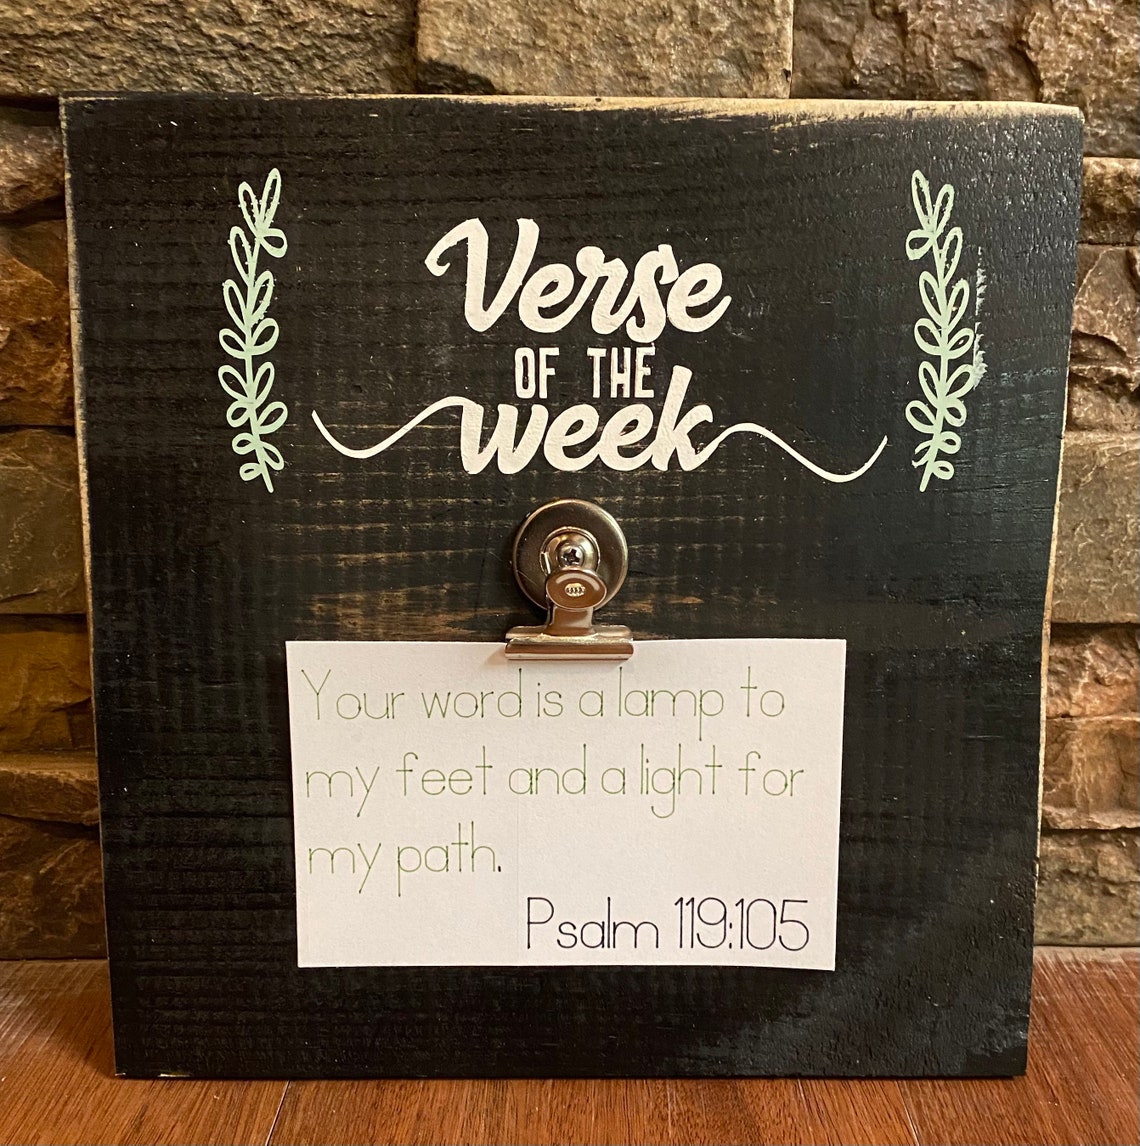 Verse
OF THE
week
Your word is a lamp to
my feet and a light for
my path.
Psalm 119:105